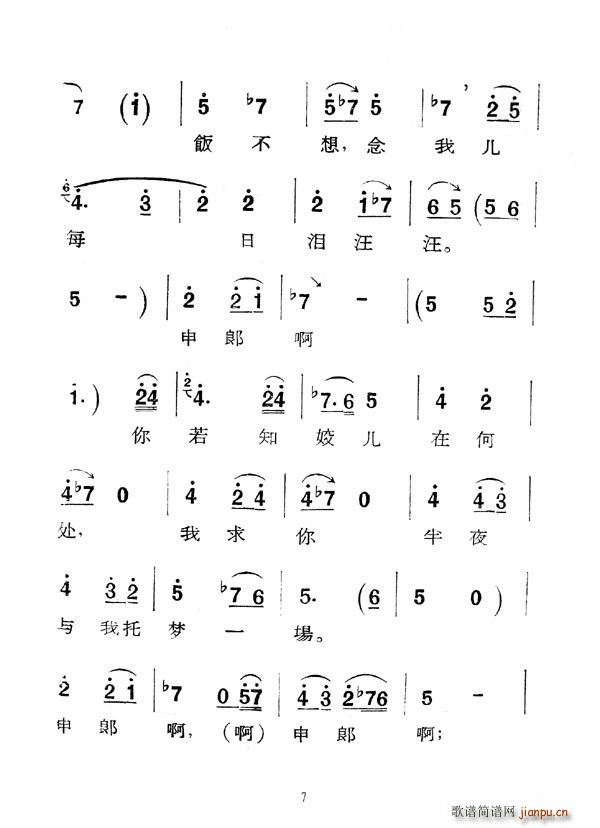 7 (i) | 5 ♭7 | 5♭7 5 | ♭7 ’ 2 5 |
飯 不 想, 念 我 儿
6 4. 3 | 2 2 | 2 i♭7 | 6 5 (5 6 |
每 日 泪 汪 汪。
5 - ) | 2 2 i | ♭7 - | (5 5 2 |
申 郎 啊
1. ) 24 | 2 4. 24 | ♭7. 6 5 | 4 2 |
你 若 知 姣 儿 在 何
4♭7 0 | 4 2 4 | 4♭7 0 | 4 4 3 |
处, 我 求 你 半 夜
4 3 2 | 5 ♭7 6 | 5. (6 | 5 0 ) |
与 我 托 梦 一 場。
2 2 i | ♭7 0 57 | 4 3 2♭76 | 5 - |
申 郎 啊, (啊) 申 郎 啊;
7
歌谱简谱网 jianpu.cn